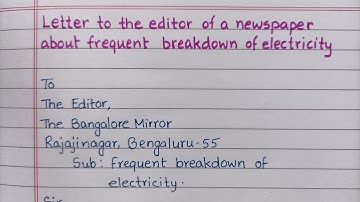 Letter to the editor of a newspaper
about frequent breakdown of electricity
To
The Editor,
The Bangalore Mirror
Rajajinagar, Bengaluru-55
Sub: frequent breakdown of
electricity.
Sir